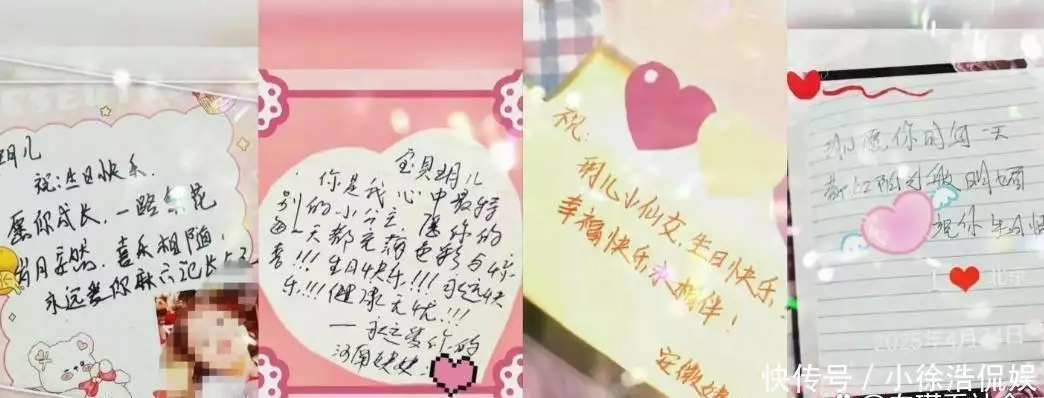 玥儿
祝:生日快乐.
愿你成长,一路繁花
岁月安然,喜乐相随!
永远爱你
宝贝玥儿
你是我心中最特
别的小公主,愿你的
每一天都充满色彩与惊
喜!!!生日快乐!!!永远快
乐!!!健康无忧!!!
—永远爱你的
河南
祝:
玥儿小仙女,生日快乐,
幸福快乐永相伴!
安徽
愿你的每一天
都如阳光般明媚
祝你生日快
I ❤ 北京
2025年4月
快传号 / 小徐浩侃娱